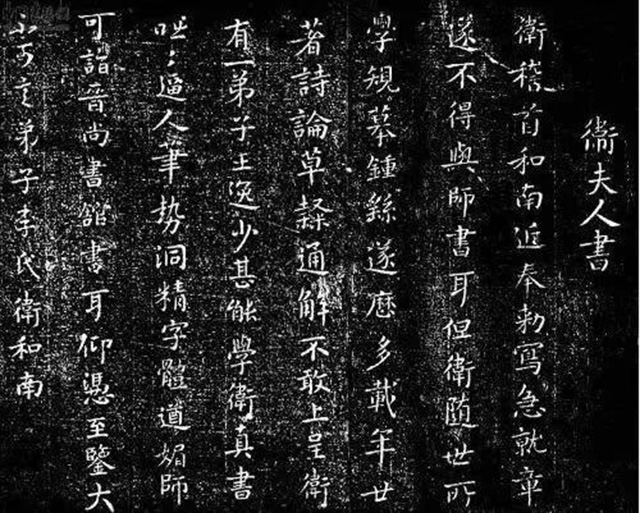 衛夫人書
衛稽首和南近奉勑寫急就章
遂不得與師書耳但衛随世所
學規摹鍾繇遂歷多載年廿
著詩論草隸通解不敢上呈衛
有一弟子王逸少甚能學衛真書
咄咄逼人筆勢洞精字體遒媚師
可詣晉尚書館書耳仰憑至鑒大
不可言弟子李氏衛和南